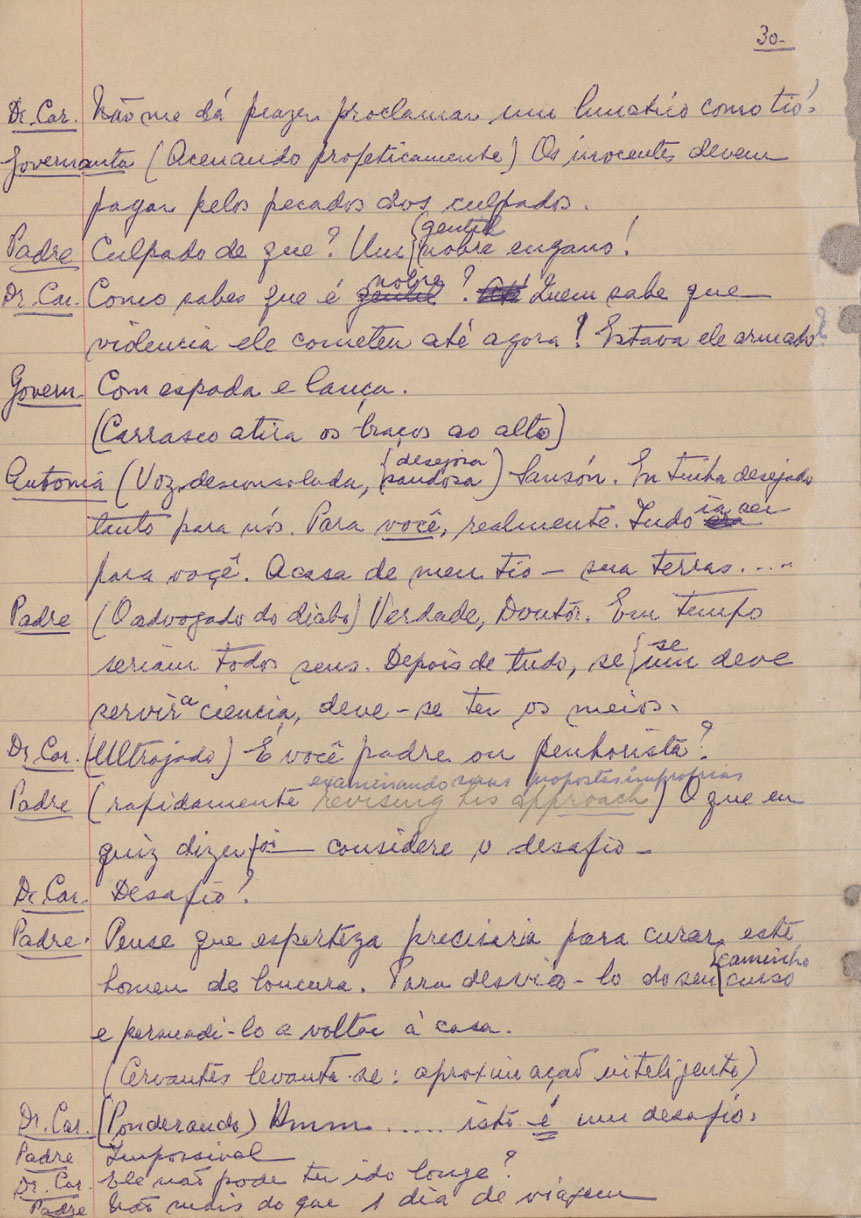 30-
Dr. Car. Não me dá prazer proclamar um lunatico como tio.
Governanta (Acenando profeticamente) Os inocentes devem
pagar pelos pecados dos culpados.
gentil
Padre Culpado de que? Um { nobre engano!
nobre
Dr. Car. Como sabes que é gentil ? Quem sabe que
violencia ele cometeu até agora? Estava ele armado?
Govern. Com espada e lança.
(Carrasco atira os braços ao alto)
desejosa
Antonia (Voz desconsolada, { saudosa ) Sansón. Eu tinha desejado
ia ser
tanto para nós. Para você, realmente. Tudo era
para voçê. A casa de meu tio — sua terras....
Padre (O advogado do diabo) Verdade, Doutor. Em tempo
se
seriam todos seus. Depois de tudo, se { um deve
servir a ciencia, deve-se ter os meios.
Dr. Car. (Ultrajado) É você padre ou penhorista?
examinando suas propostas improprias
Padre (rapidamente revising his approach) O que eu
quiz dizer foi — considere o desafio —
Dr. Car. Desafio?
Padre. Pense que esperteza precisaria para curar este
caminho
homem de loucura. Para desviá-lo do seu { curso
e persuadi-lo a voltar á casa.
(Cervantes levanta-se: aproximação inteligente)
Dr. Car. (Ponderando) Hmmm ..... isto é um desafio.
Padre Impossivel
Dr. Car. Ele não pode ter ido longe?
Padre Não mais do que 1 dia de viagem